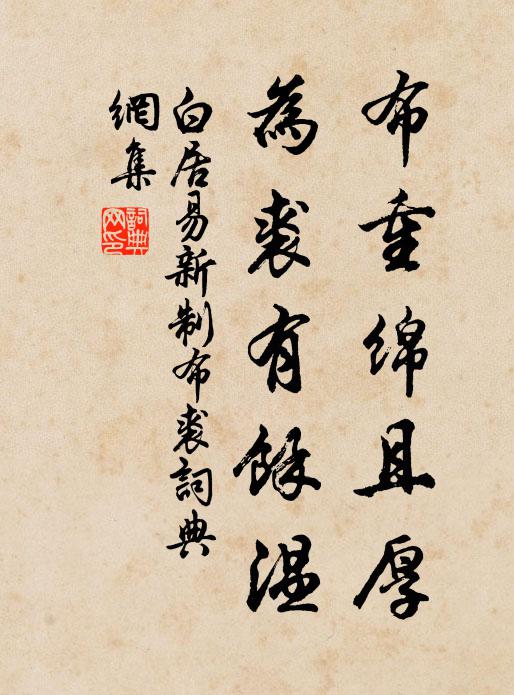 布重綿且厚
為裘有餘温
白居易新制布裘詞典
網集
詞典
网印